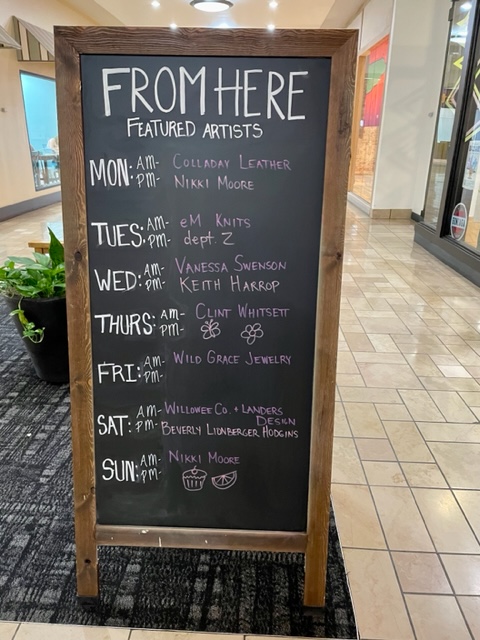 FROM HERE
FEATURED ARTISTS
MON: AM- COLLADAY LEATHER
PM- NIKKI MOORE
TUES: AM- eM KNITS
PM- dept. Z
WED: AM- VANESSA SWENSON
PM- KEITH HARROP
THURS: AM- CLINT WHITSETT
PM-
FRI: AM- WILD GRACE JEWELRY
PM-
SAT: AM- WILLOWEE CO. + LANDERS
DESIGN
PM- BEVERLY LIONBERGER HODGINS
SUN: AM- NIKKI MOORE
PM-